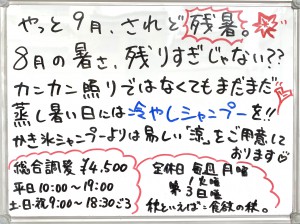 やっと9月、されど残暑。
8月の暑さ、残りすぎじゃない??
カンカン照りではなくてもまだまだ
蒸し暑い日には冷やしシャンプーを!!
かき氷シャンプーよりは易しい「涼」をご用意して
おります
総合調髪 ¥4,500
平日10:00〜19:00
土・日・祝9:00〜18:30ごろ
定休日 毎週 月曜
第3日曜
秋といえば:食欲の秋。